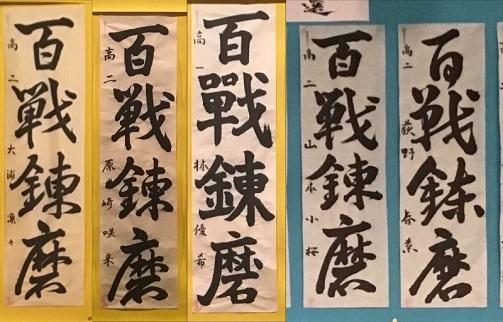 選
百戦錬磨
高二 荻野
百戦錬磨
高二 山本小桜
百戰錬磨
高一 林優希
百戦錬磨
高二 咲来
百戦錬磨
高二 大浦凛々